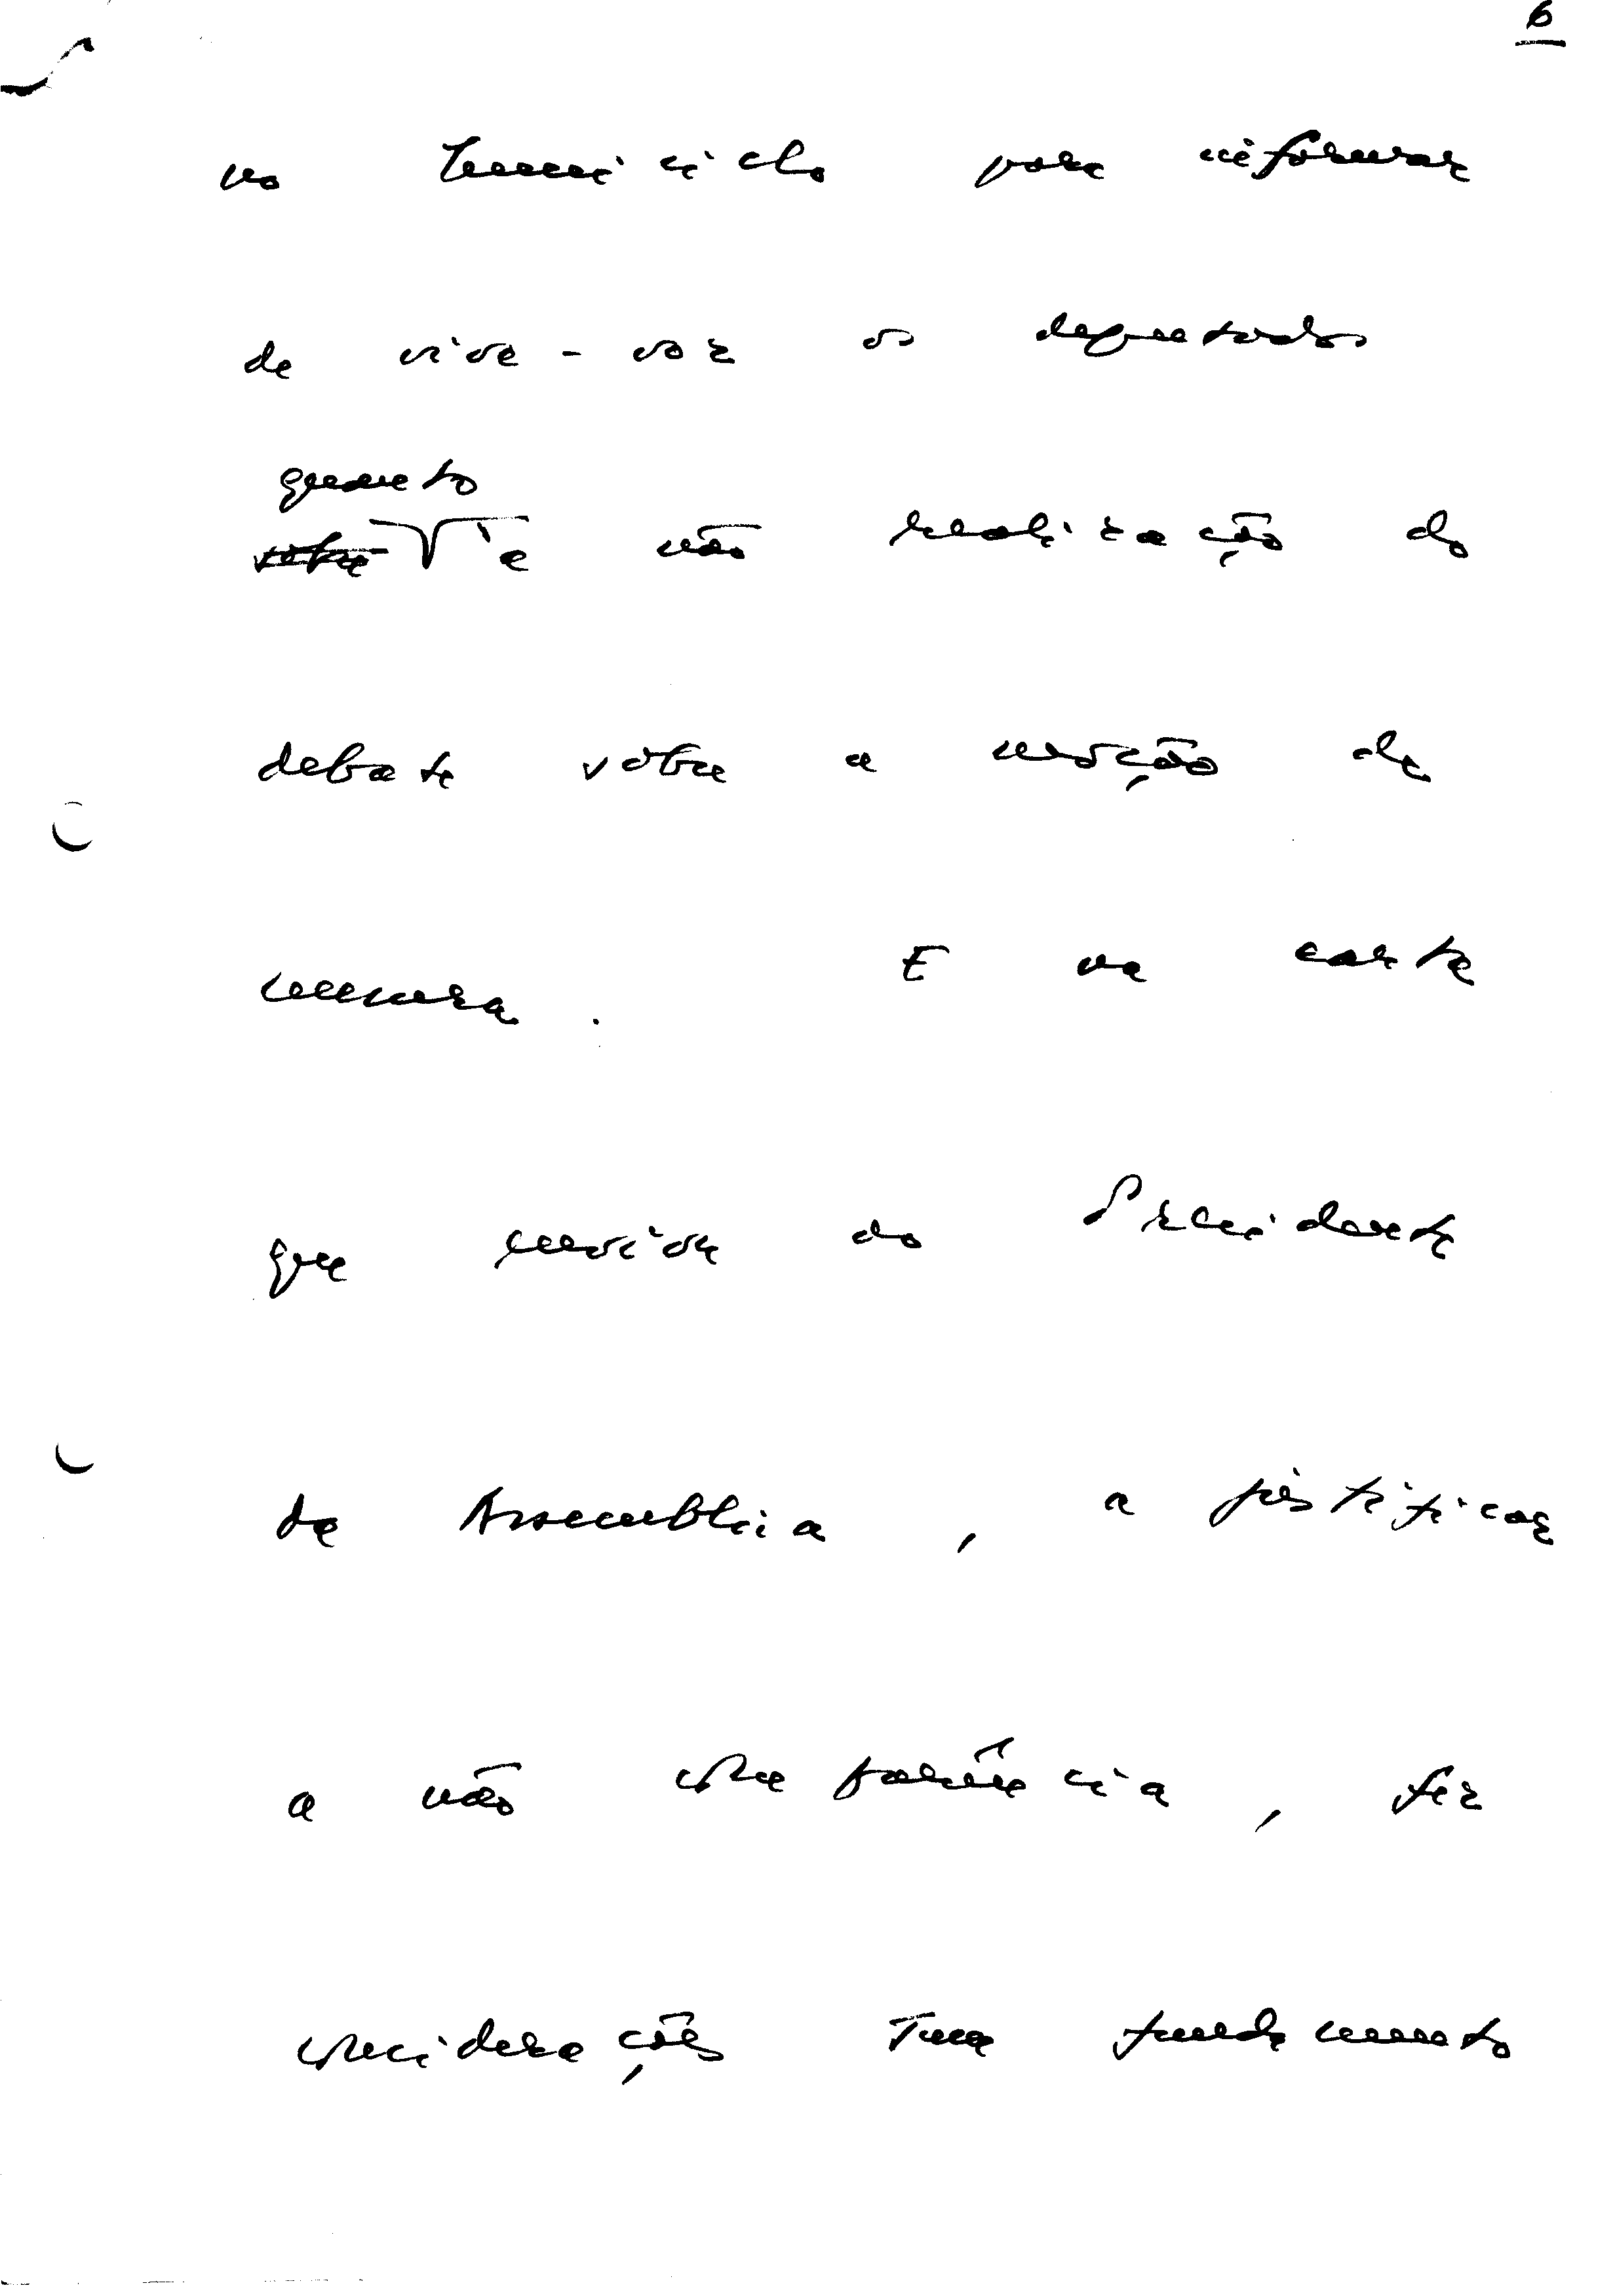 6
no hemiciclo para informar
de viva-voz os deputados
quanto
sobre à não realização do
debate sobre a moção de
censura. E na carta
que enviou ao Presidente
da Assembleia, a justificar
a não comparência, fez
considerações sem fundamento